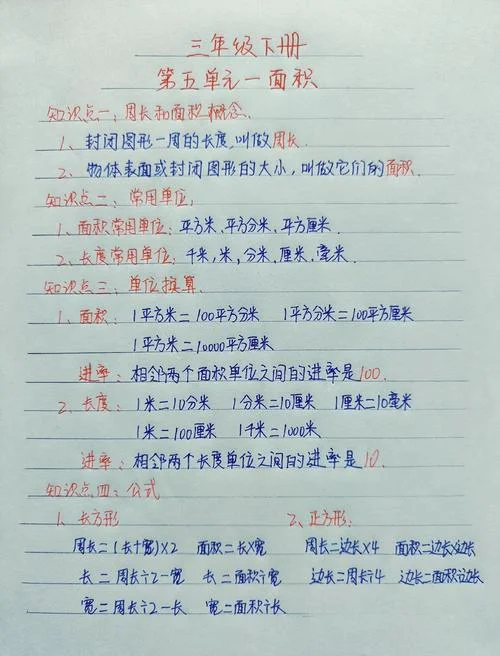 三年级下册
第五单元一面积
知识点一：周长和面积概念.
1、封闭图形一周的长度,叫做周长.
2、物体表面或封闭图形的大小,叫做它们的面积.
知识点二：常用单位,
1、面积常用单位：平方米、平方分米、平方厘米.
2、长度常用单位：千米,米,分米、厘米、毫米.
知识点三：单位换算.
1、面积： 1平方米=100平方分米 1平方分米=100平方厘米
1平方米=10000平方厘米
进率：相邻两个面积单位之间的进率是100.
2、长度： 1米=10分米 1分米=10厘米 1厘米=10毫米
1米=100厘米 1千米=1000米
进率：相邻两个长度单位之间的进率是10.
知识点四：公式
1、长方形 2、正方形：
周长=(长+宽)×2 面积=长×宽 周长=边长×4 面积=边长×边长
长=周长÷2-宽 长=面积÷宽 边长=周长÷4 边长=面积÷边长
宽=周长÷2-长 宽=面积÷长